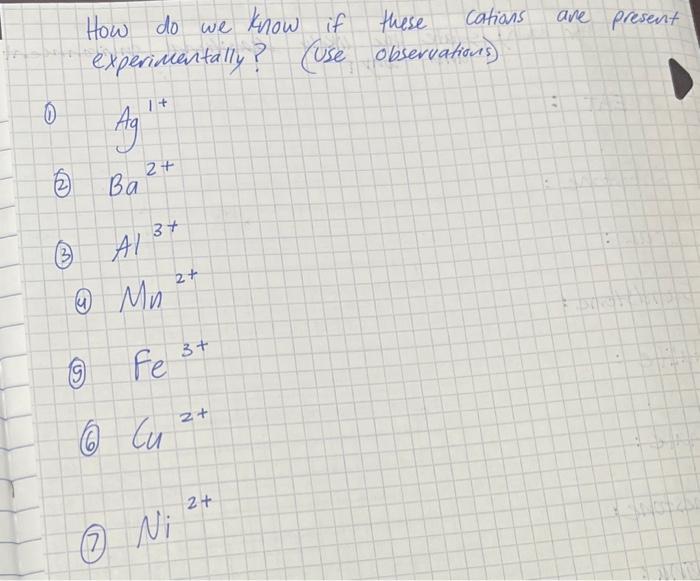 How do we know if these cations are present
experimentally? (Use observations)
① Ag 1+
② Ba 2+
③ Al 3+
④ Mn 2+
⑤ Fe 3+
⑥ Cu 2+
⑦ Ni 2+